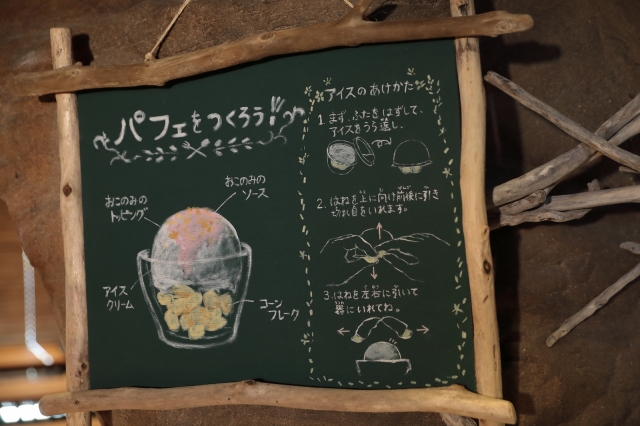 パフェをつくろう!!
おこのみの
ソース
おこのみの
トッピング
アイス
クリーム
コーン
フレーク
アイスのあけかた
1.まず、ふたをはずして、
アイスをうら返し、
2.はねを上に向け前後に引き
切れ目をいれます。
3.はねを左右に引いて
器にいれてね。